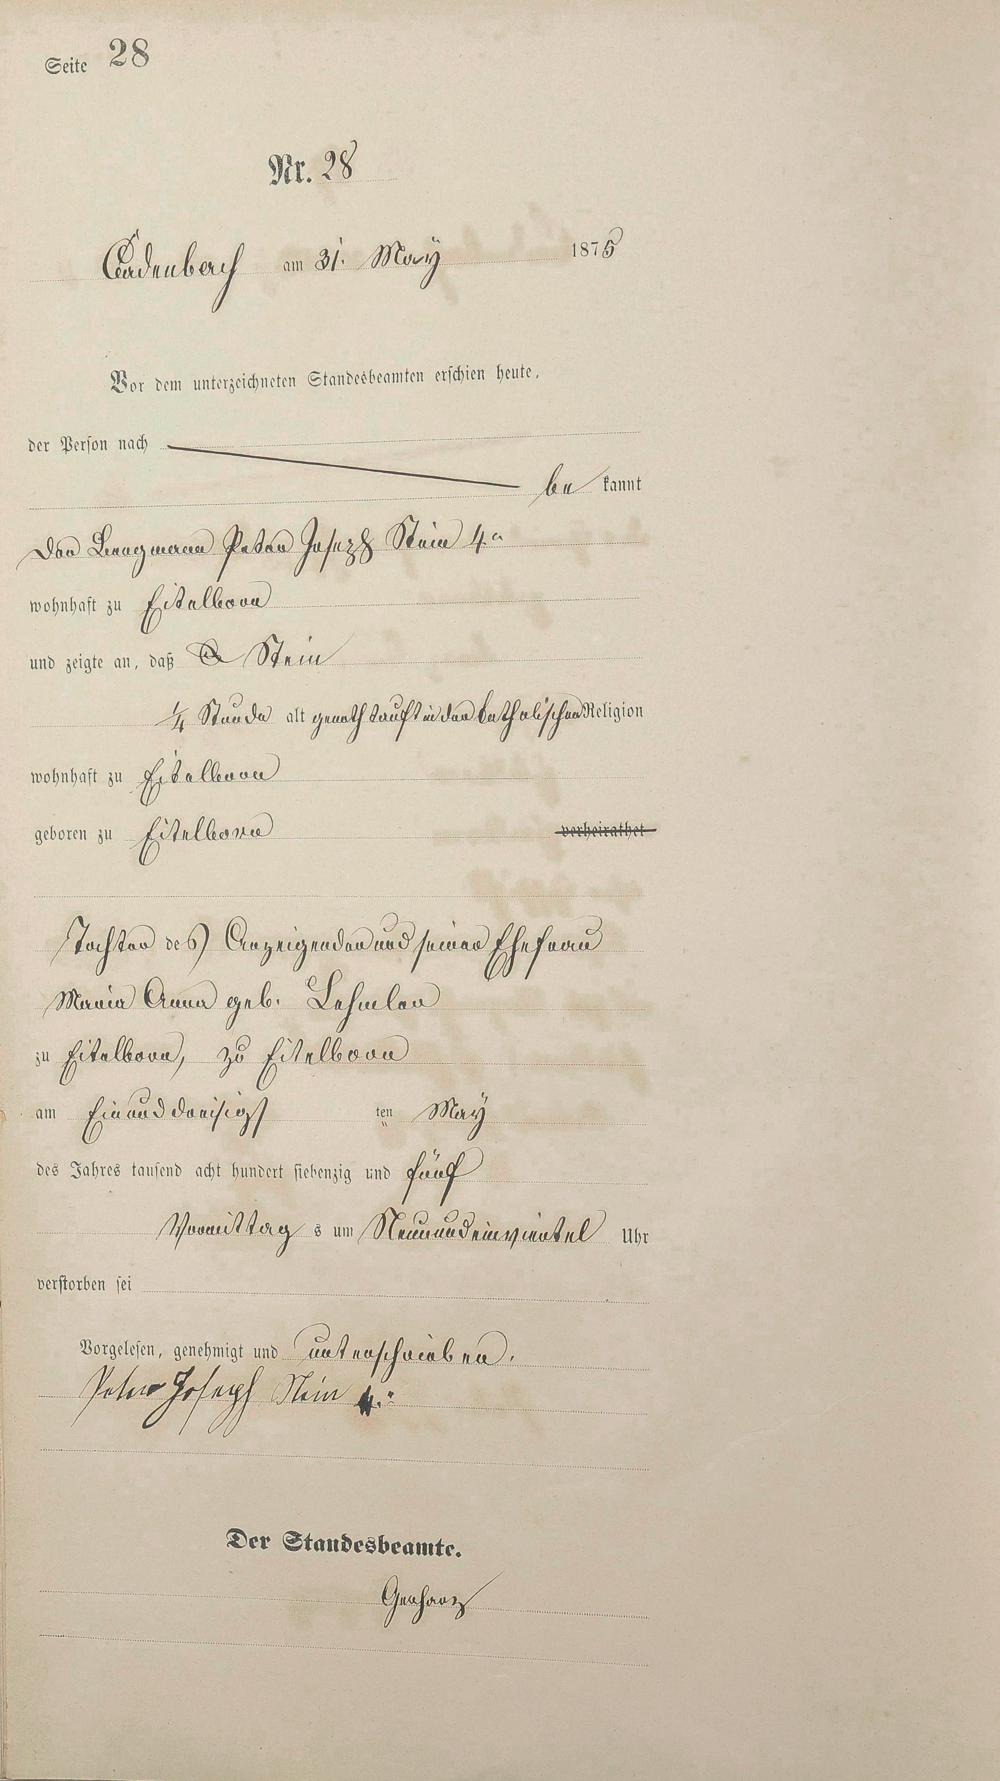 Seite 28
Nr. 28
Cadenbach am 31. May 1875
Vor dem unterzeichneten Standesbeamten erschien heute,
der Person nach
be kannt
Der Bergmann Peter Joseph Stein 4r
wohnhaft zu Eitelborn
und zeigte an, daß Stein
1/4 Stunde alt genothtauft in der katholischen Religion
wohnhaft zu Eitelborn
geboren zu Eitelborn verheirathet
Tochter des Anzeigender und seiner Ehefrau
Maria Anna geb. Lehmler
zu Eitelborn, zu Eitelborn
am Einunddreisigs ten May
des Jahres tausend acht hundert siebenzig und fünf
Vormittag s um Neunundeinviertel Uhr
verstorben sei
Vorgelesen, genehmigt und unterschrieben.
Peter Joseph Stein 4.
Der Standesbeamte.
Gerharz